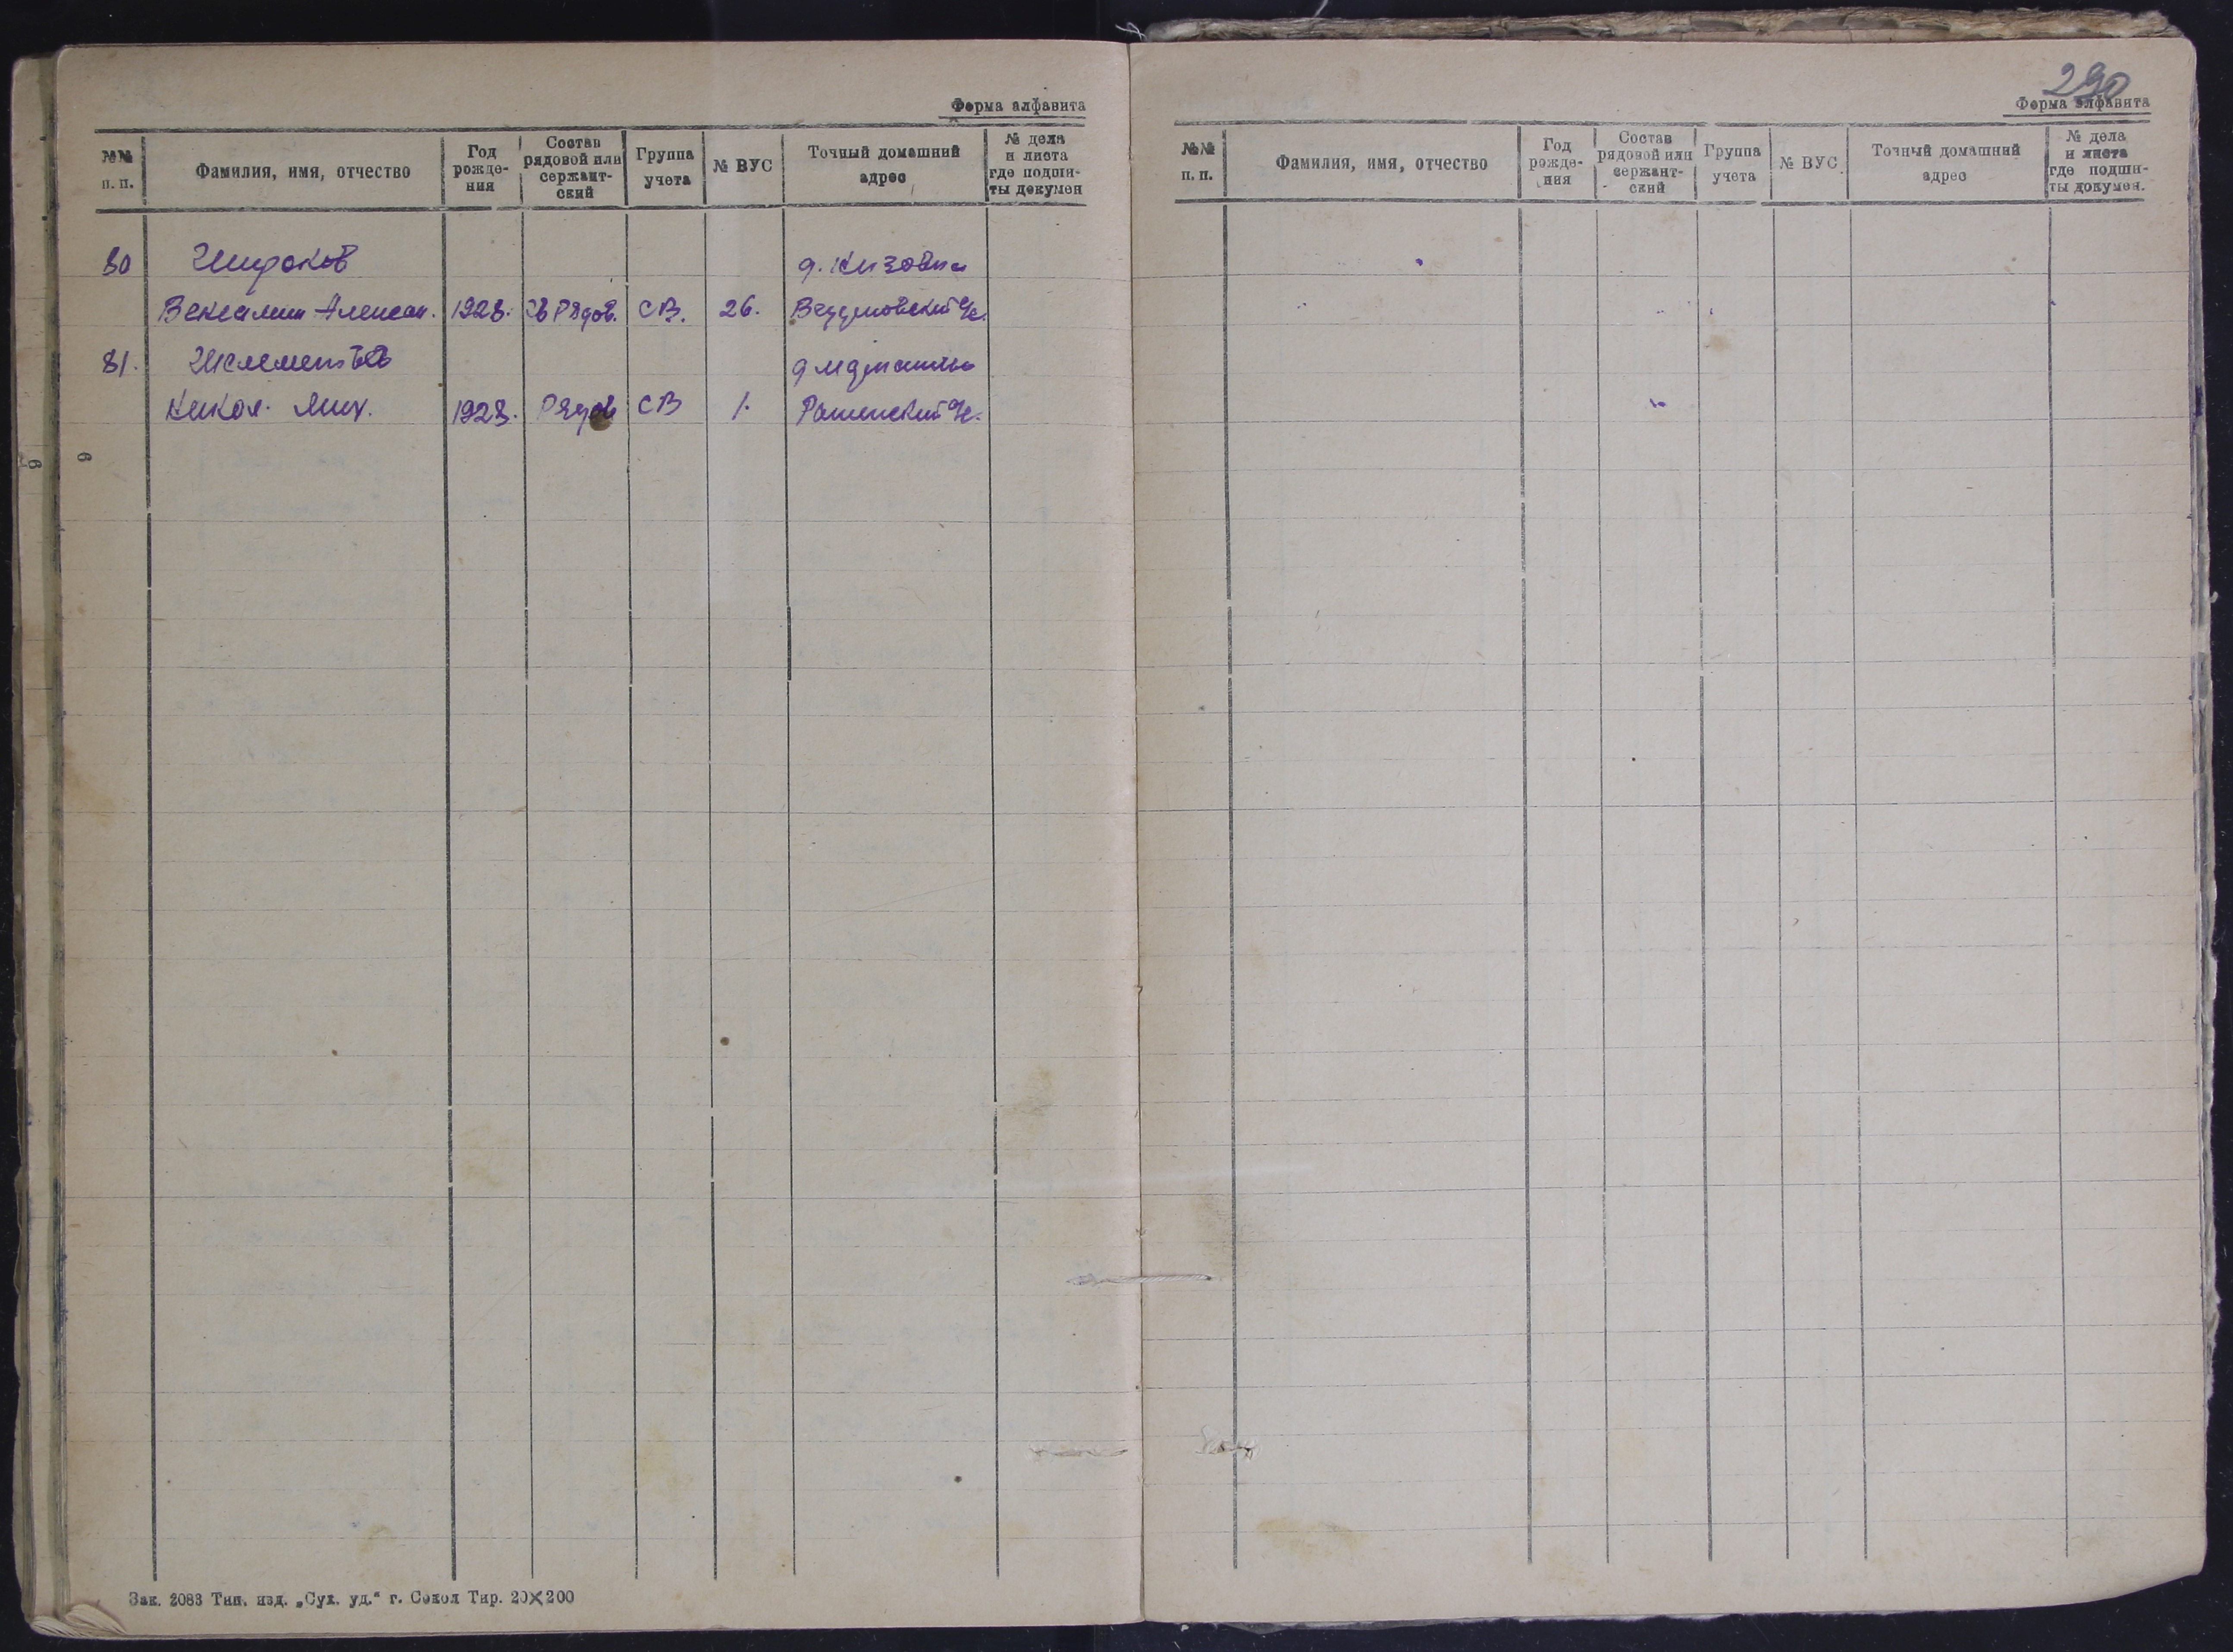 Форма алфавита
№№ п. п.
Фамилия, имя, отчество
Год рожде-ния
Состав рядовой или сержант-ский
Группа учета
№ ВУС
Точный домашний адрес
№ дела и листа где подши-ты докумен
80 Широков
Вениамин Алексан. 1928. Рядов. СВ. 26.
81.
Никол. Мих. 1928. Рядов СВ 1.
Зак. 2083 Тип. изд. „Сух. уд.“ г. Сокол Тир. 20×200
290
Форма алфавита
№№ п. п.
Фамилия, имя, отчество
Год рожде-ния
Состав рядовой или сержант-ский
Группа учета
№ ВУС
Точный домашний адрес
№ дела и листа где подши-ты докумен.